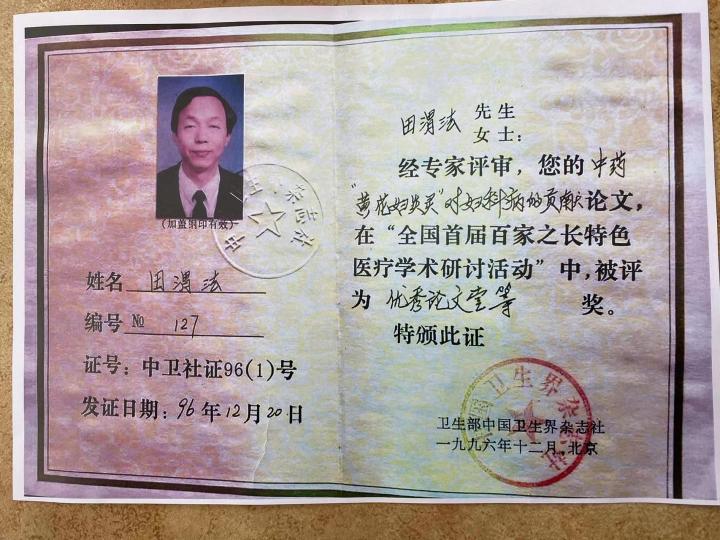 (加盖钢印有效)
姓名 田渭法
编号 № 127
证号：中卫社证96(1)号
发证日期：96年12月20日
田渭法 先生
女士：
经专家评审，您的中药
"黄花妇炎灵"对妇科病的贡献论文，
在“全国首届百家之长特色
医疗学术研讨活动”中，被评
为 优秀论文壹等 奖。
特颁此证
卫生部中国卫生界杂志社
一九九六年十二月.北京
卫生界杂志社